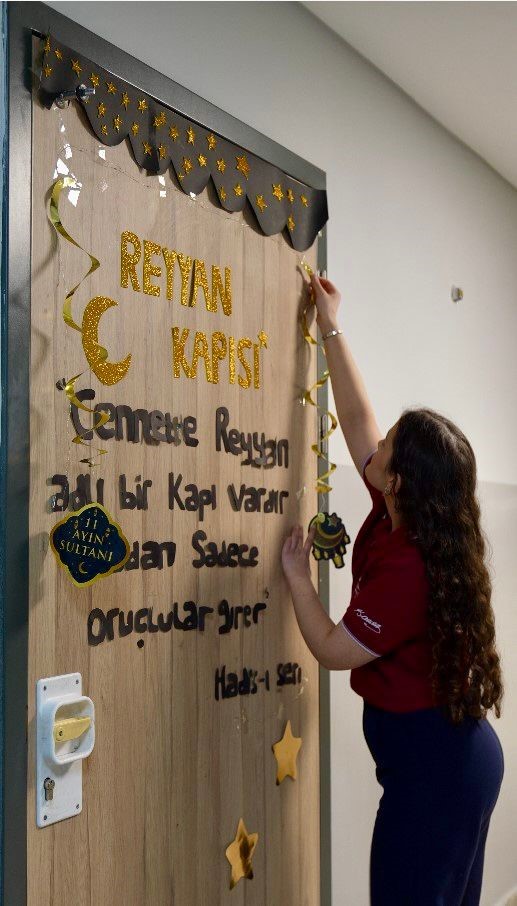 REYYAN
KAPISI
"Cennette Reyyan
adlı bir Kapı vardır
dan Sadece
Oruçlular girer
Hadis-i şeri
11
AYIN
SULTANI